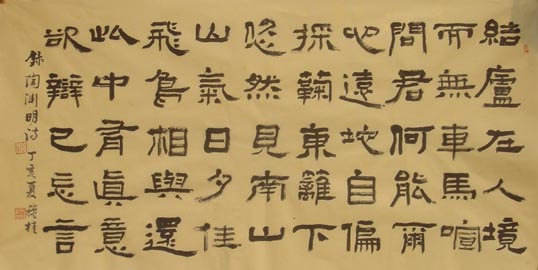 結廬在人境
而無車馬喧
問君何能爾
心遠地自偏
採鞠東籬下
悠然見南山
山氣日夕佳
飛鳥相與還
此中有眞意
欲辯已忘言
錄陶渊明诗 丁亥夏